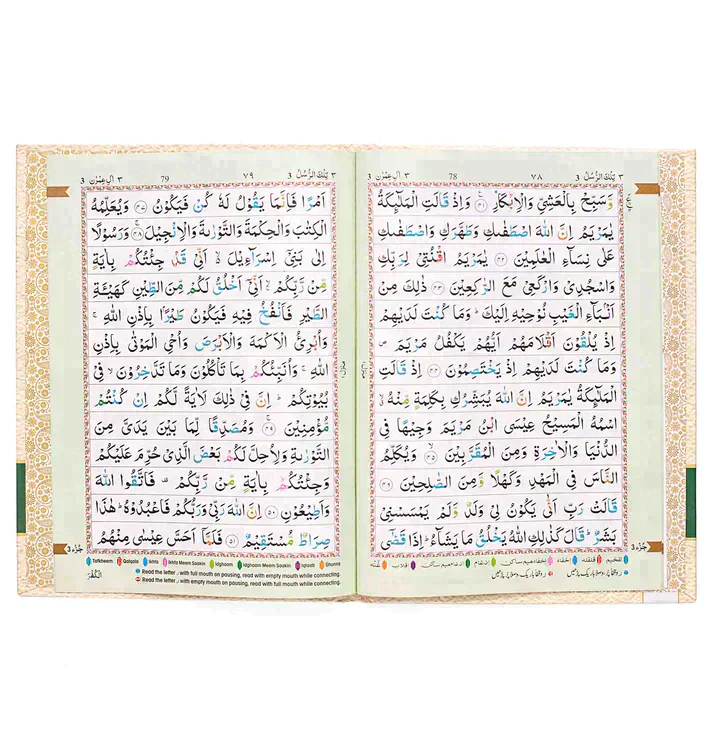 ٣ تِلْكَ الرُّسُلُ 3
٧٨
78
٣ اٰلِ عِمْرٰن 3
وَّسَبِّحْ بِالْعَشِيِّ وَالْاِبْكَارِ ﴿٤١﴾ وَاِذْ قَالَتِ الْمَلٰٓئِكَةُ
يٰمَرْيَمُ اِنَّ اللّٰهَ اصْطَفٰىكِ وَطَهَّرَكِ وَاصْطَفٰىكِ
عَلٰى نِسَآءِ الْعٰلَمِيْنَ ﴿٤٢﴾ يٰمَرْيَمُ اقْنُتِيْ لِرَبِّكِ
وَاسْجُدِيْ وَارْكَعِيْ مَعَ الرّٰكِعِيْنَ ﴿٤٣﴾ ذٰلِكَ مِنْ
اَنْۢبَآءِ الْغَيْبِ نُوْحِيْهِ اِلَيْكَ ؕ وَمَا كُنْتَ لَدَيْهِمْ
اِذْ يُلْقُوْنَ اَقْلَامَهُمْ اَيُّهُمْ يَكْفُلُ مَرْيَمَ ۪
وَمَا كُنْتَ لَدَيْهِمْ اِذْ يَخْتَصِمُوْنَ ﴿٤٤﴾ اِذْ قَالَتِ
الْمَلٰٓئِكَةُ يٰمَرْيَمُ اِنَّ اللّٰهَ يُبَشِّرُكِ بِكَلِمَةٍ مِّنْهُ ۙ
اسْمُهُ الْمَسِيْحُ عِيْسَى ابْنُ مَرْيَمَ وَجِيْهًا فِي
الدُّنْيَا وَالْاٰخِرَةِ وَمِنَ الْمُقَرَّبِيْنَ ﴿٤٥﴾ وَيُكَلِّمُ
النَّاسَ فِي الْمَهْدِ وَكَهْلًا وَّمِنَ الصّٰلِحِيْنَ ﴿٤٦﴾
قَالَتْ رَبِّ اَنّٰى يَكُوْنُ لِيْ وَلَدٌ وَّلَمْ يَمْسَسْنِيْ
بَشَرٌ ؕ قَالَ كَذٰلِكِ اللّٰهُ يَخْلُقُ مَا يَشَآءُ ؕ اِذَا قَضٰٓى
جُزْء 3
تفخیم قلقلہ اخفاء اخفا میم ساکن ادغام ادغام میم ساکن اقلاب غنہ
٣ تِلْكَ الرُّسُلُ 3
٧٩
79
٣ اٰلِ عِمْرٰن 3
اَمْرًا فَاِنَّمَا يَقُوْلُ لَهٗ كُنْ فَيَكُوْنُ ﴿٤٧﴾ وَيُعَلِّمُهُ
الْكِتٰبَ وَالْحِكْمَةَ وَالتَّوْرٰىةَ وَالْاِنْجِيْلَ ﴿٤٨﴾ وَرَسُوْلًا
اِلٰى بَنِيْٓ اِسْرَآءِيْلَ ۙ اَنِّيْ قَدْ جِئْتُكُمْ بِاٰيَةٍ
مِّنْ رَّبِّكُمْ ۙ اَنِّيْٓ اَخْلُقُ لَكُمْ مِّنَ الطِّيْنِ كَهَيْئَةِ
الطَّيْرِ فَاَنْفُخُ فِيْهِ فَيَكُوْنُ طَيْرًۢا بِاِذْنِ اللّٰهِ ۚ
وَاُبْرِئُ الْاَكْمَهَ وَالْاَبْرَصَ وَاُحْيِ الْمَوْتٰى بِاِذْنِ
اللّٰهِ ۚ وَاُنَبِّئُكُمْ بِمَا تَاْكُلُوْنَ وَمَا تَدَّخِرُوْنَ ۙ فِيْ
بُيُوْتِكُمْ ؕ اِنَّ فِيْ ذٰلِكَ لَاٰيَةً لَّكُمْ اِنْ كُنْتُمْ
مُّؤْمِنِيْنَ ﴿٤٩﴾ وَمُصَدِّقًا لِّمَا بَيْنَ يَدَيَّ مِنَ
التَّوْرٰىةِ وَلِاُحِلَّ لَكُمْ بَعْضَ الَّذِيْ حُرِّمَ عَلَيْكُمْ
وَجِئْتُكُمْ بِاٰيَةٍ مِّنْ رَّبِّكُمْ ۫ فَاتَّقُوا اللّٰهَ
وَاَطِيْعُوْنِ ﴿٥٠﴾ اِنَّ اللّٰهَ رَبِّيْ وَرَبُّكُمْ فَاعْبُدُوْهُ ؕ هٰذَا
صِرَاطٌ مُّسْتَقِيْمٌ ﴿٥١﴾ فَلَمَّآ اَحَسَّ عِيْسٰى مِنْهُمُ
جُزْء 3
Tafkheem Qalqala Ikhfa Ikhfa Meem Saakin Idghaam Idghaam Meem Saakin Iqlaab Ghunna
Read the letter ر with full mouth on pausing, read with empty mouth while connecting.
Read the letter ر with empty mouth on pausing, read with full mouth while connecting.
الْكُفْرَ